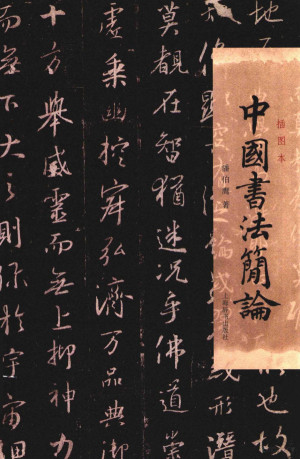 插图本
中國書法簡論
潘伯鹰 著
地
也故
像顯
形潛
莫覩在智猶迷況乎佛道崇
虛乘幽控寂弘濟万品典御
十方舉威靈而無上抑神力
而無下大之則彌於宇宙細